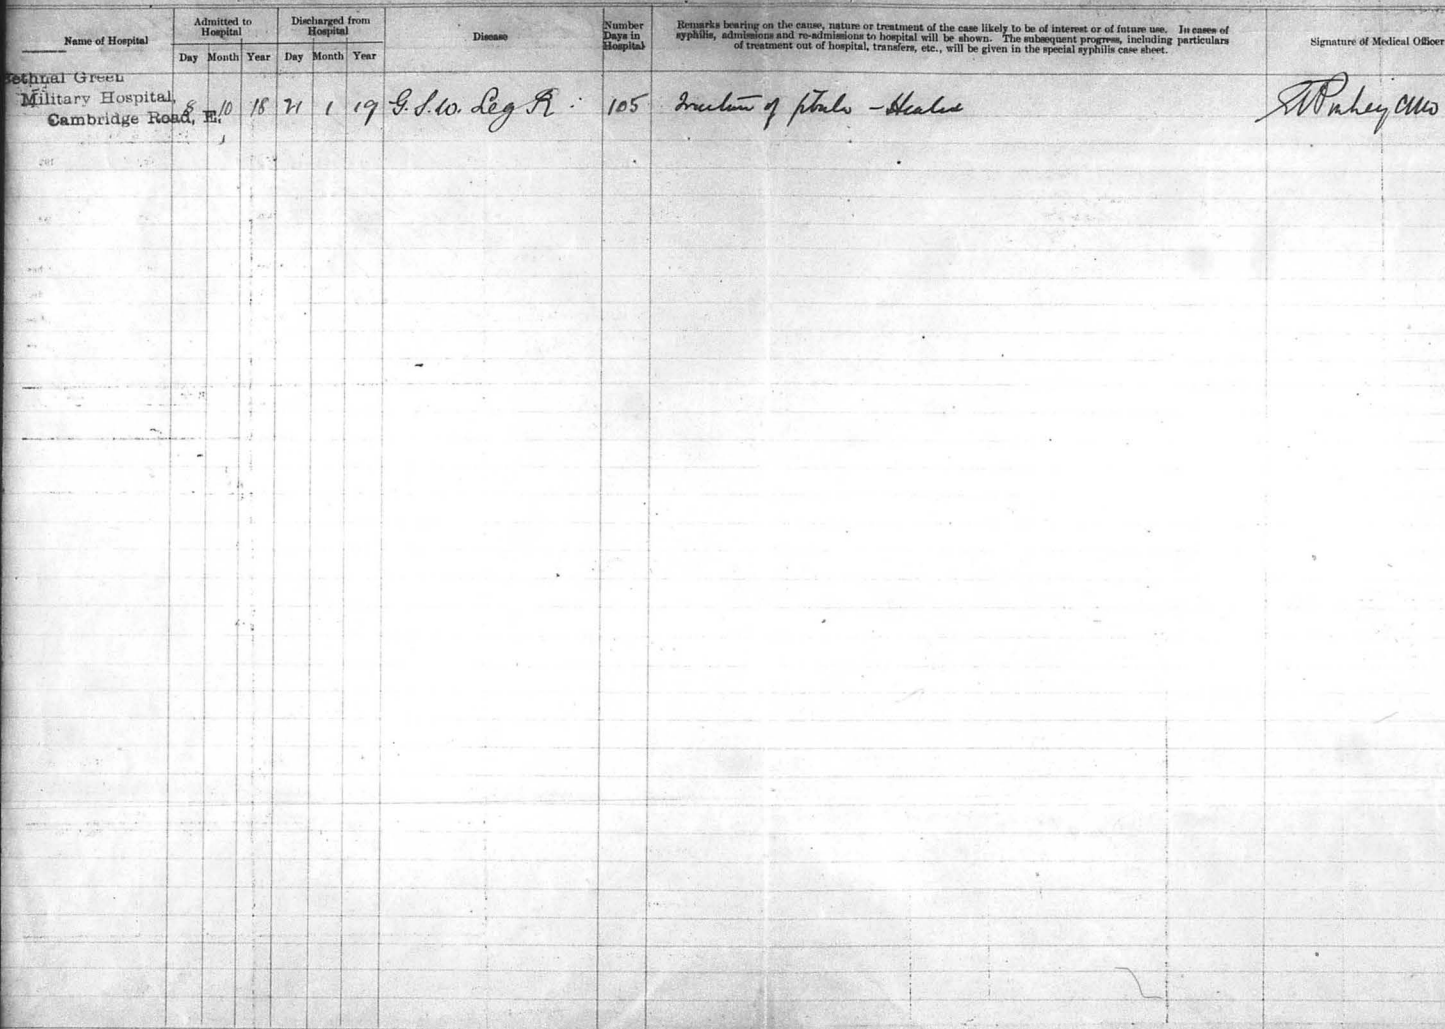 Name of Hospital
Admitted to
Hospital
Day Month Year
Discharged from
Hospital
Day Month Year
Disease
Number
Days in
Hospital
Remarks bearing on the cause, nature or treatment of the case likely to be of interest or of future use. In cases of
syphilis, admissions and re-admissions to hospital will be shown. The subsequent progress, including particulars
of treatment out of hospital, transfers, etc., will be given in the special syphilis case sheet.
Signature of Medical Officer
Bethnal Green
Military Hospital,
Cambridge Road, E.
8 10 18 21 1 19 G.S.W. Leg R. 105 Fracture of fibula — Healed